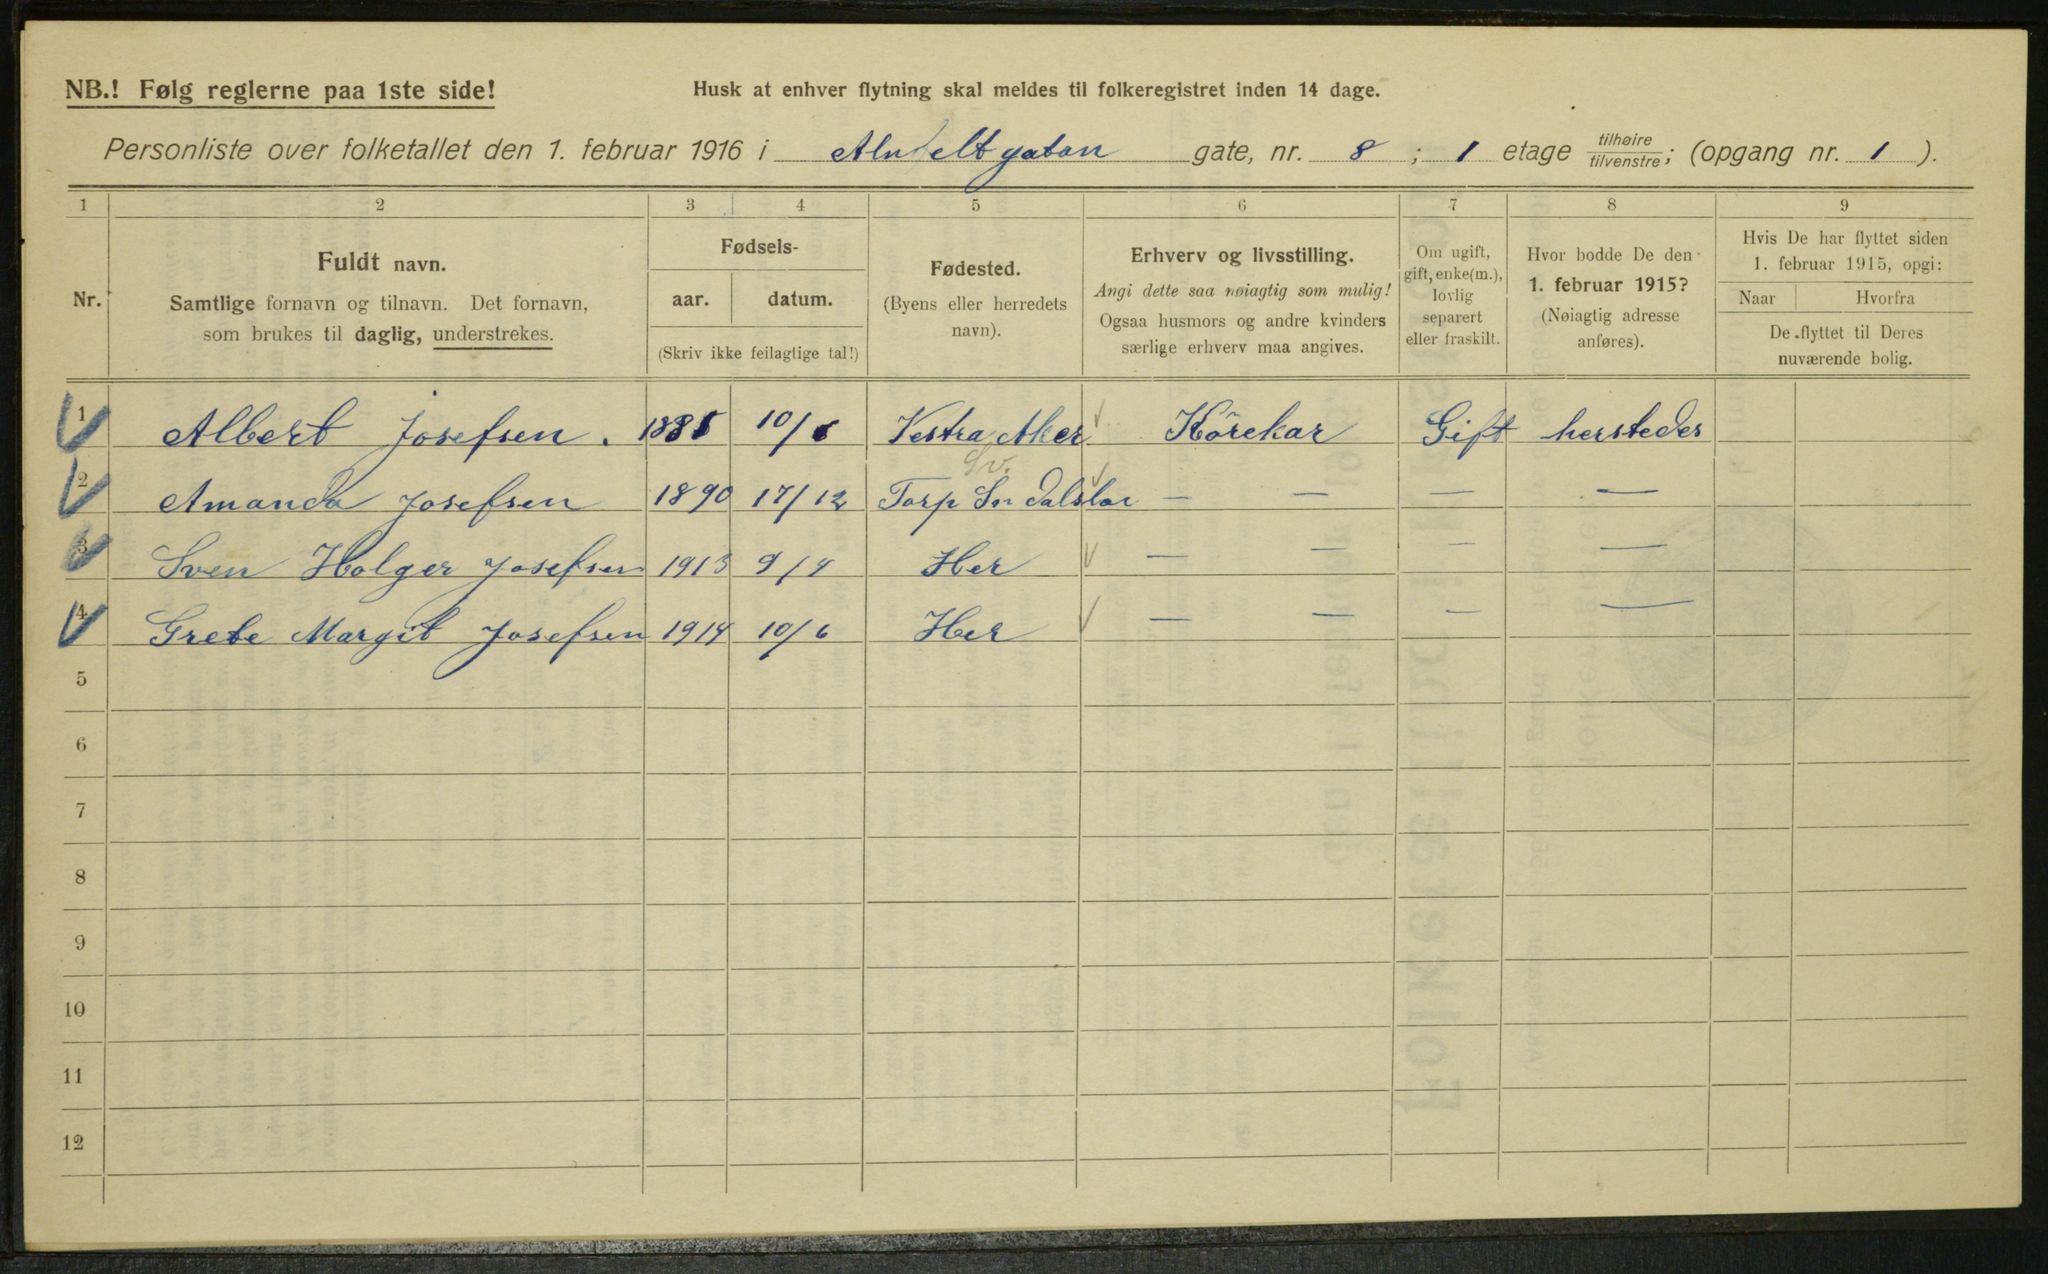 NB.! Følg reglerne paa 1ste side!
Husk at enhver flytning skal meldes til folkeregistret inden 14 dage.
Personliste over folketallet den 1. februar 1916 i gate, nr. 8 ; 1 etage tilhøire / tilvenstre; (opgang nr. 1 ).
1 2 3 4 5 6 7 8 9
Nr.
Fuldt navn.
Samtlige fornavn og tilnavn. Det fornavn,
som brukes til daglig, understrekes.
Fødsels-
aar. datum.
(Skriv ikke feilagtige tal!)
Fødested.
(Byens eller herredets
navn).
Erhverv og livsstilling.
Angi dette saa nøiagtig som mulig!
Ogsaa husmors og andre kvinders
særlige erhverv maa angives.
Om ugift,
gift, enke(m.),
lovlig
separert
eller fraskilt.
Hvor bodde De den
1. februar 1915?
(Nøiagtig adresse
anføres).
Hvis De har flyttet siden
1. februar 1915, opgi:
Naar Hvorfra
De flyttet til Deres
nuværende bolig.
1 Albert Josefsen . 10/6 Vestra Aker Körekar Gift herstedes
Sv.
2 Amanda Josefsen 1890 17/12 Torp — — — —
3 Sven Holger Josefsen 1913 9/4 Her — — — —
4 Grete Margit Josefsen 1914 10/6 Her — — — —
5
6
7
8
9
10
11
12